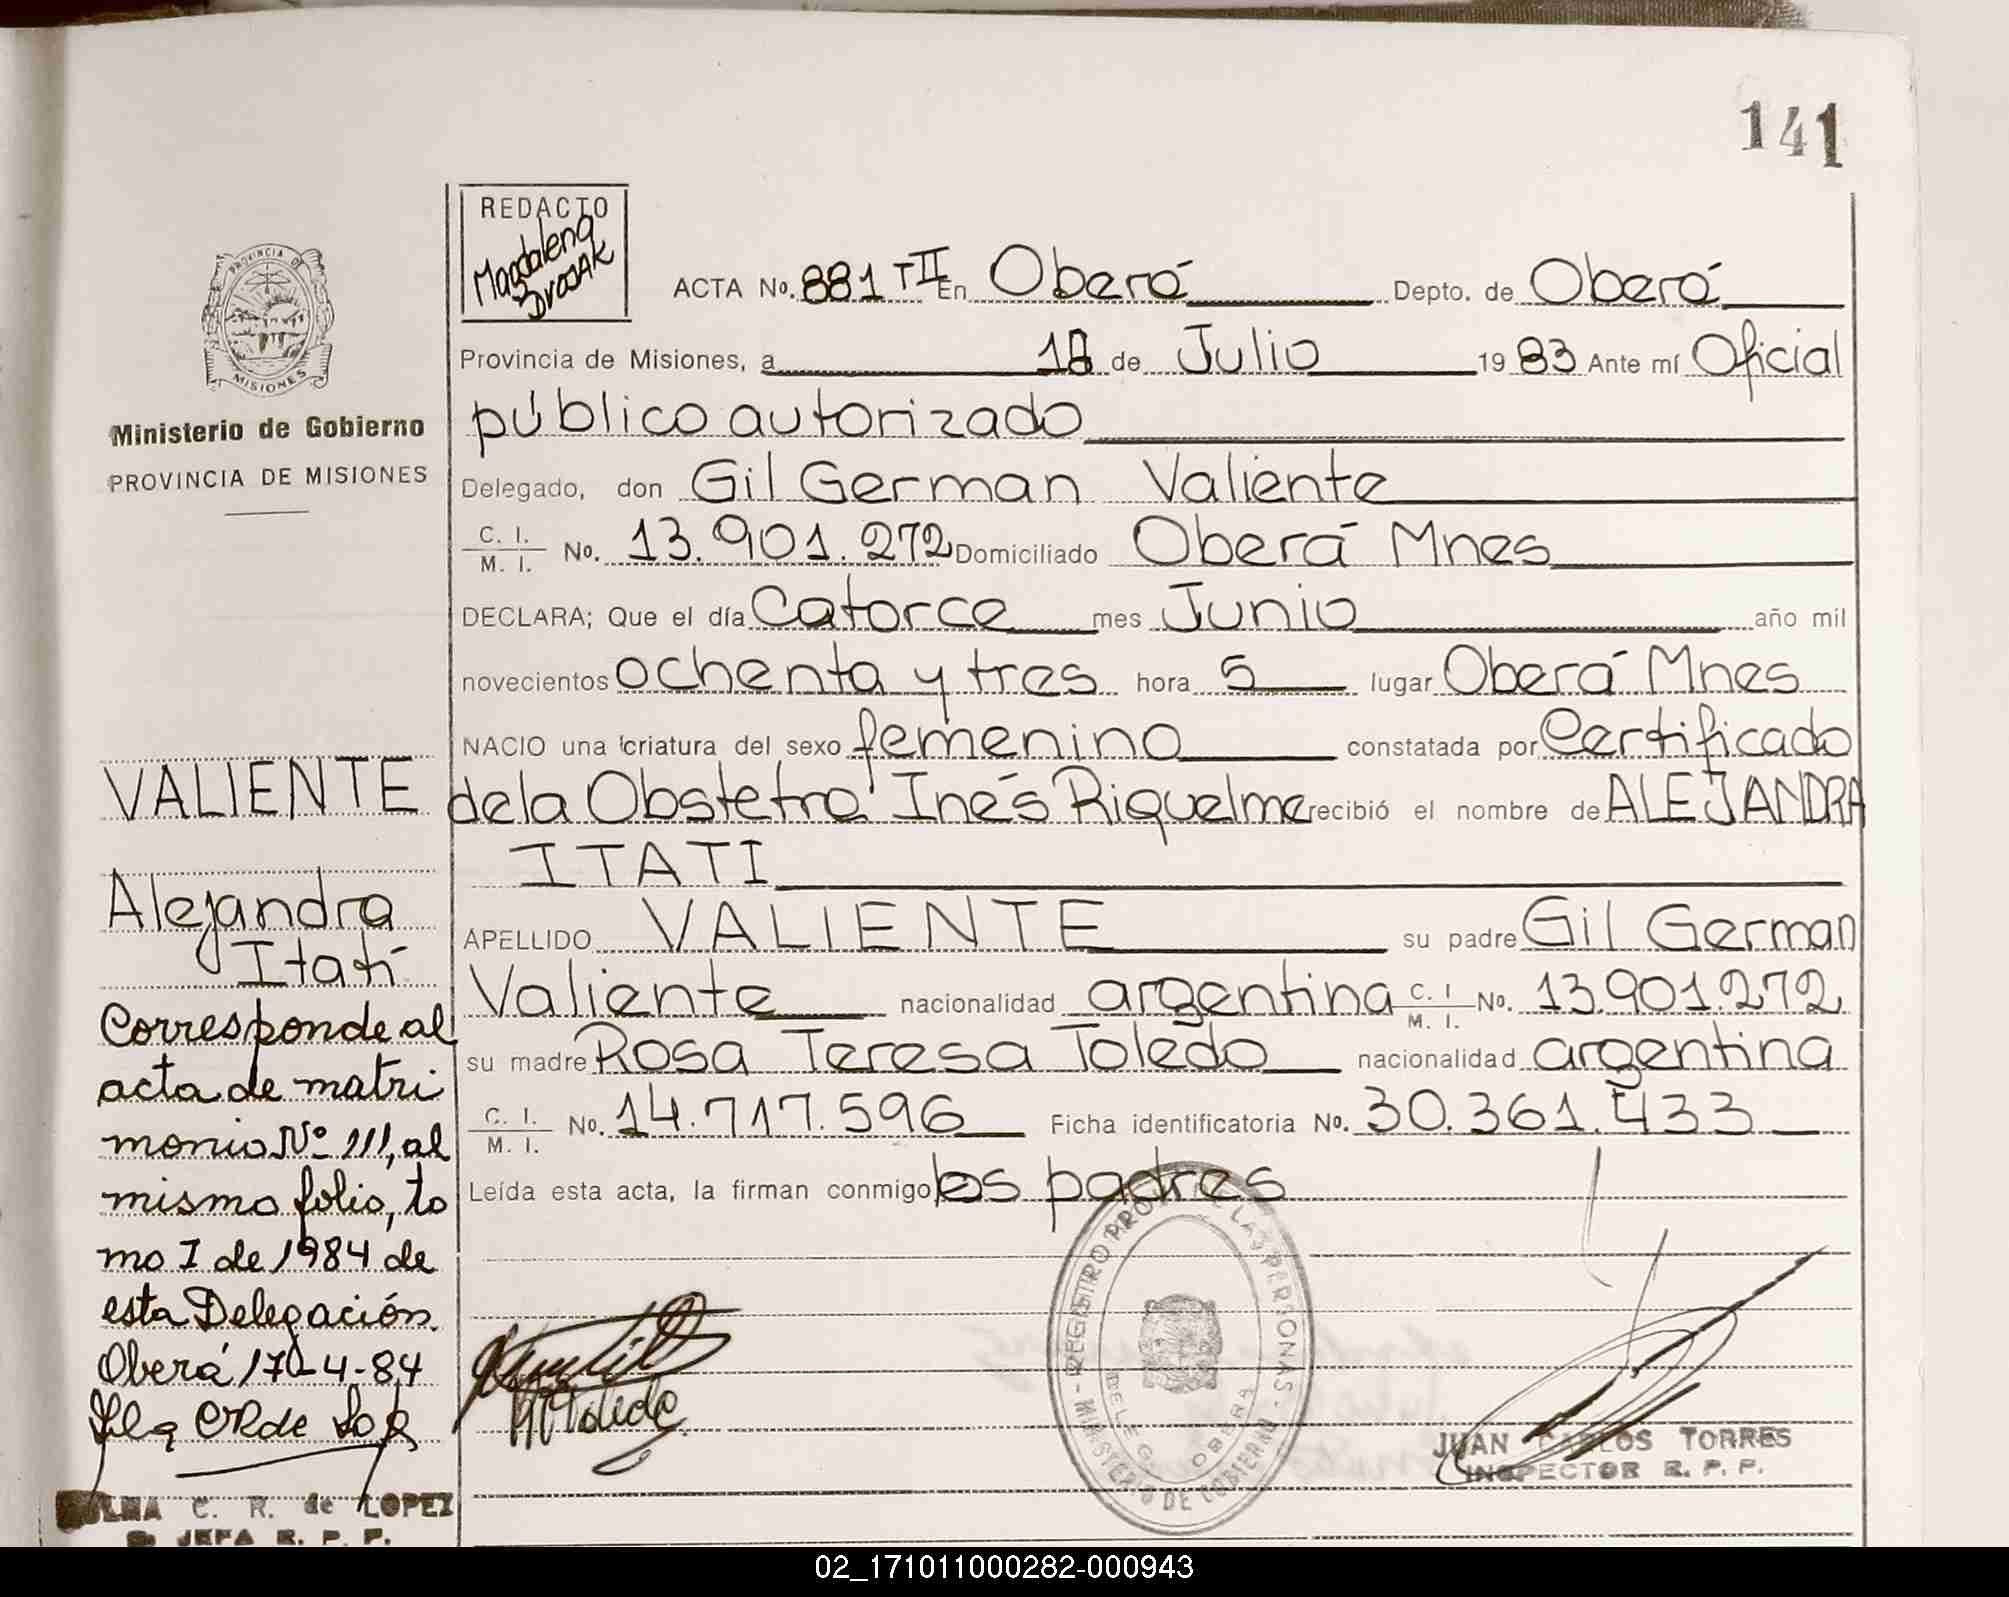 141
REDACTO
Magdalena
PROVINCIA DE
MISIONES
Ministerio de Gobierno
PROVINCIA DE MISIONES
ACTA No. 881 T II En Oberá Depto. de Oberá
Provincia de Misiones, a 18 de Julio 1983 Ante mí Oficial
público autorizado
Delegado, don Gil German Valiente
C. I. M. I. No. 13.901.272 Domiciliado Oberá Mnes
DECLARA; Que el día Catorce mes Junio año mil
novecientos ochenta y tres hora 5 lugar Oberá Mnes
NACIO una criatura del sexo femenino constatada por Certificado
de la Obstetra Inés Riquelme recibió el nombre de ALEJANDRA
ITATI
APELLIDO VALIENTE su padre Gil German
Valiente nacionalidad argentina C. I. M. I. No. 13.901.272
su madre Rosa Teresa Toledo nacionalidad argentina
C. I. M. I. No. 14.717.596 Ficha identificatoria No. 30.361.433
Leída esta acta, la firman conmigo los padres
VALIENTE
Alejandra
Itatí
Corresponde al
acta de matri
monio Nº 111, al
mismo folio, to
mo I de 1984 de
esta Delegación.
Oberá 17-4-84
C. R. de LOPEZ
JEFA R. P. P.
Toledo
REGISTRO PROV. DE LAS PERSONAS - MINISTERIO DE GOBIERNO -
DELEG. OBERA
JUAN CARLOS TORRES
INSPECTOR R. P. P.
02_171011000282-000943